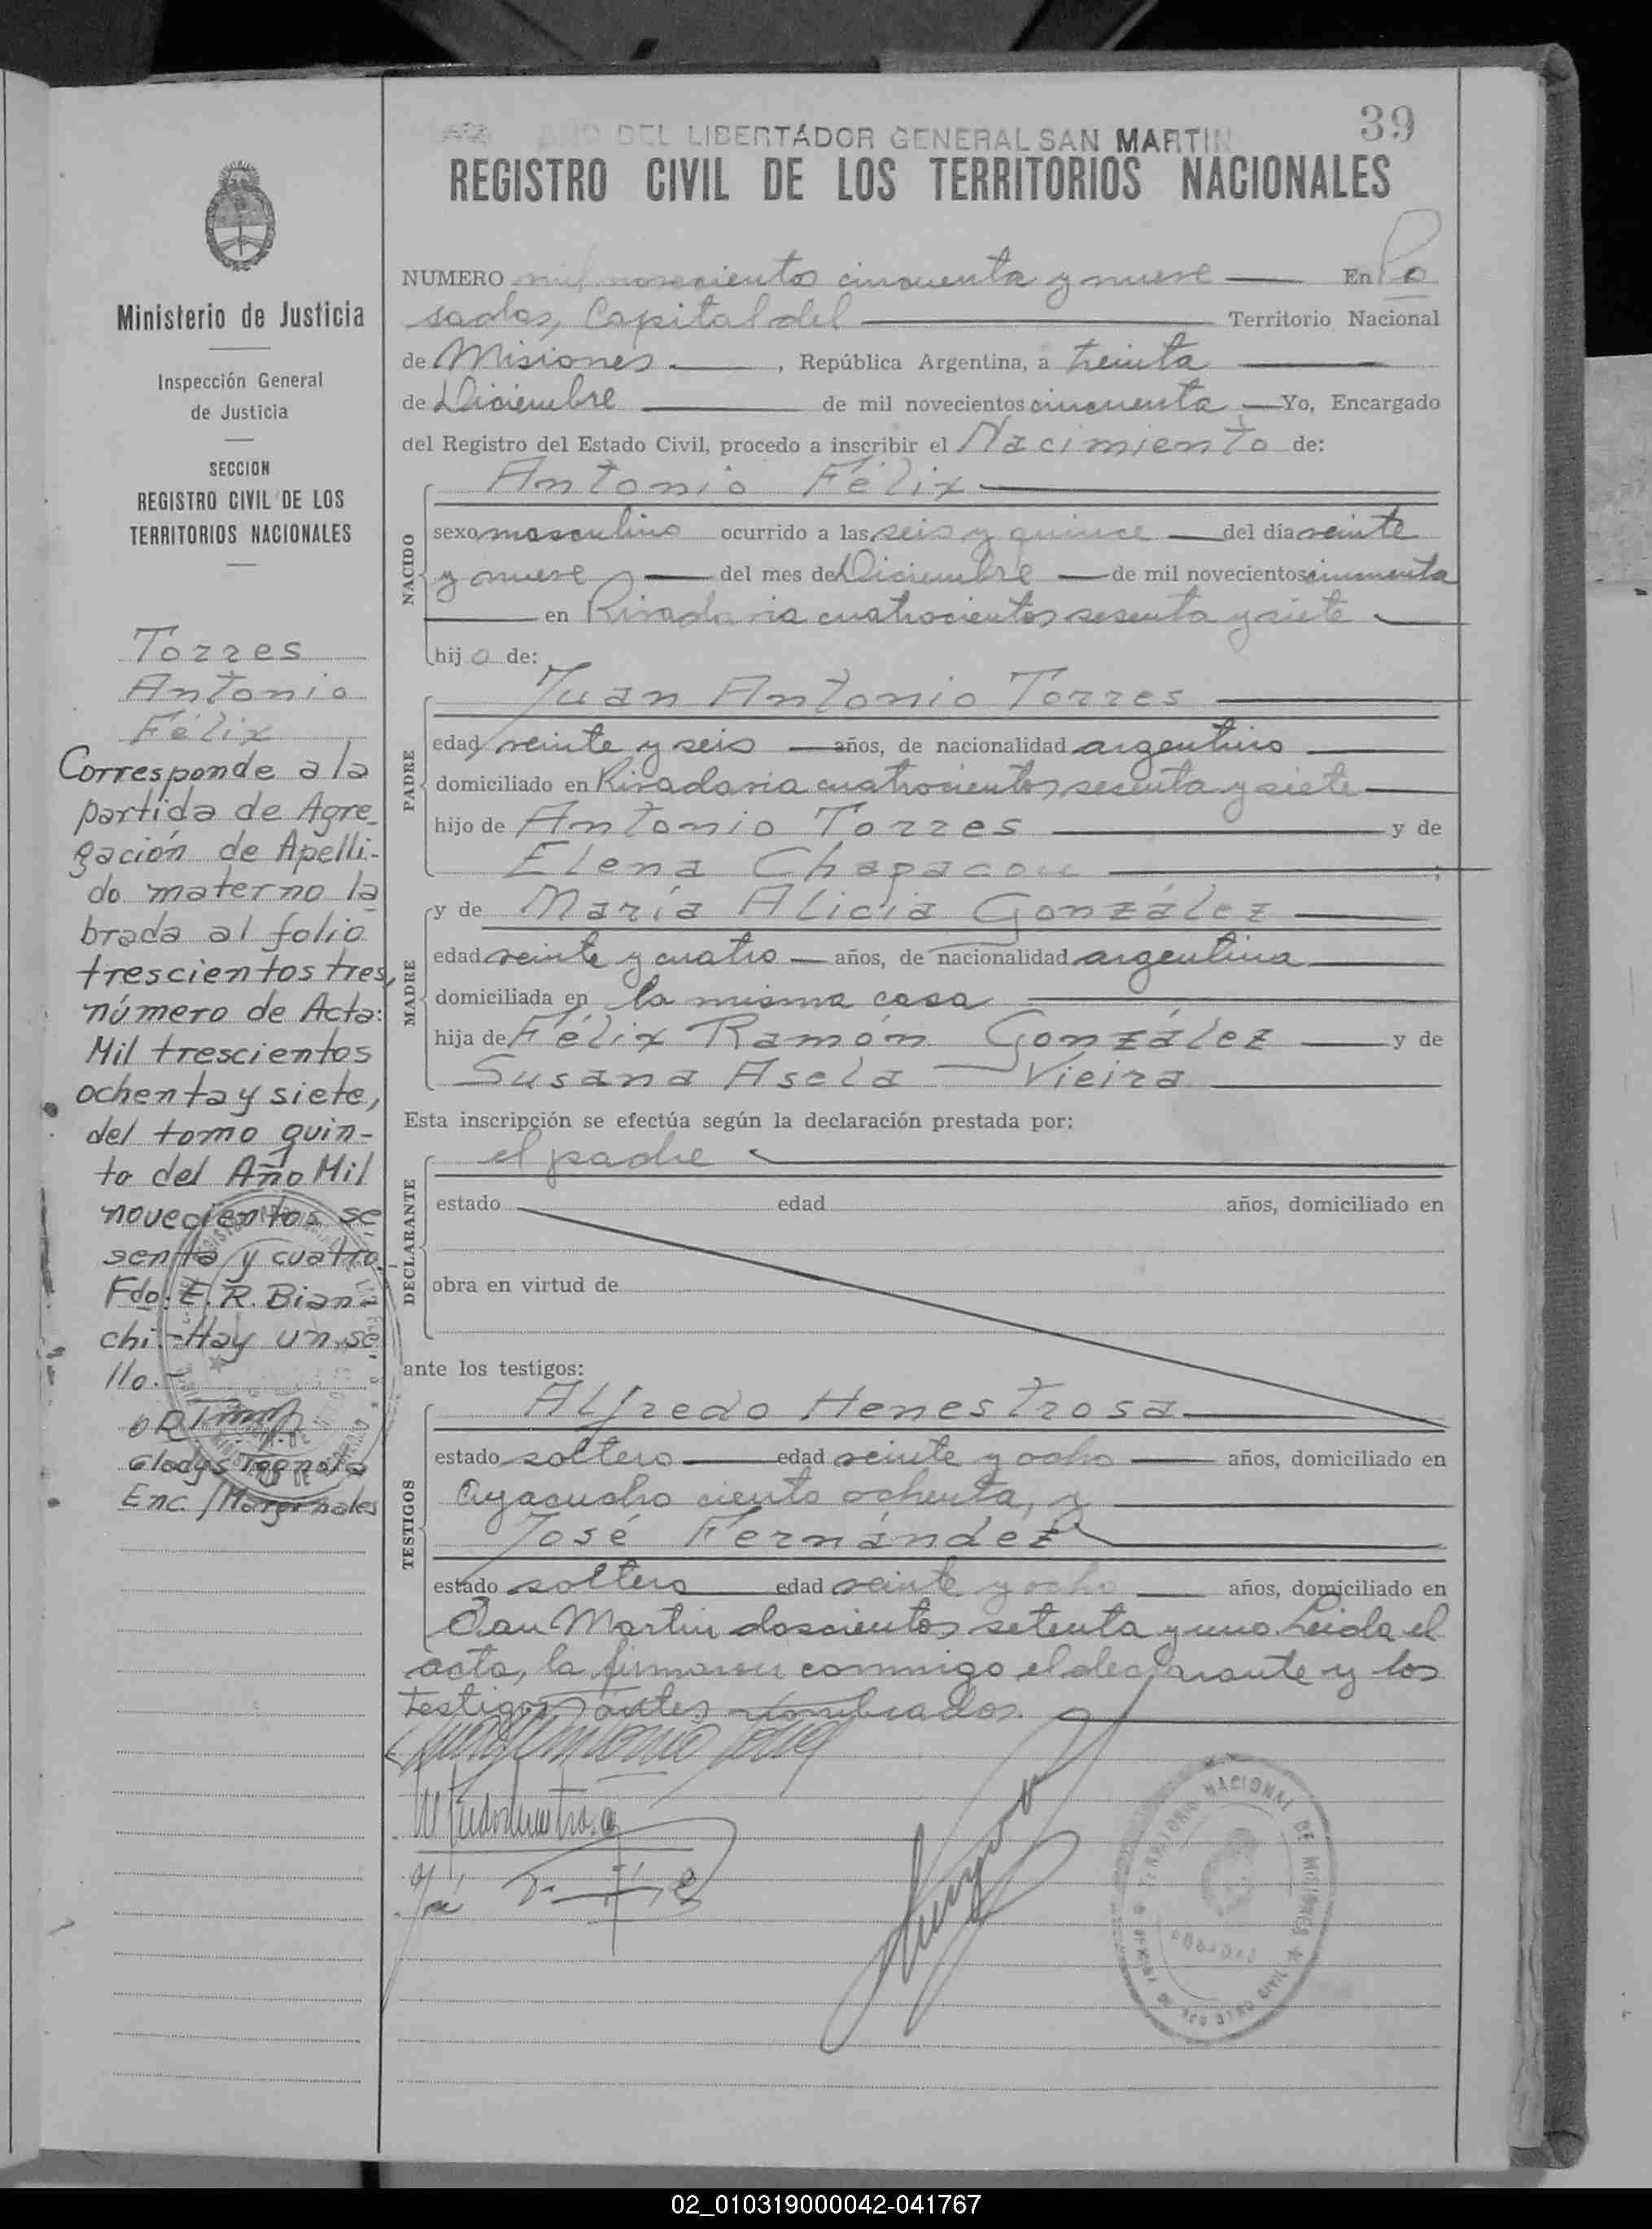 39
AÑO DEL LIBERTADOR GENERAL SAN MARTIN
REGISTRO CIVIL DE LOS TERRITORIOS NACIONALES
Ministerio de Justicia
Inspección General
de Justicia
SECCION
REGISTRO CIVIL DE LOS
TERRITORIOS NACIONALES
Torres
Antonio
Félix
Corresponde a la
partida de Agre-
gación de Apelli-
do materno la
brada al folio
trescientos tres,
número de Acta:
Mil trescientos
ochenta y siete,
del tomo quin-
to del Año Mil
novecientos se
senta y cuatro.
Fdo: E. R. Bian-
chi.-Hay un se
llo.-
Gladys
Enc./Marginales
NUMERO mil novecientos cincuenta y nueve En Po
sadas, Capital del Territorio Nacional
de Misiones, República Argentina, a treinta
de Diciembre de mil novecientos cincuenta Yo, Encargado
del Registro del Estado Civil, procedo a inscribir el Nacimiento de:
NACIDO
Antonio Félix
sexo masculino ocurrido a las seis y quince del día veinte
y nueve del mes de Diciembre de mil novecientos cincuenta
en Rivadavia cuatrocientos sesenta y siete
hijo de:
PADRE
Juan Antonio Torres
edad veinte y seis años, de nacionalidad argentino
domiciliado en Rivadavia cuatrocientos sesenta y siete
hijo de Antonio Torres y de
Elena Chapacou;
MADRE
y de María Alicia González
edad veinte y cuatro años, de nacionalidad argentina
domiciliada en la misma casa
hija de Félix Ramón González y de
Susana Asela Vieira
Esta inscripción se efectúa según la declaración prestada por:
DECLARANTE
el padre
estado edad años, domiciliado en
obra en virtud de
ante los testigos:
TESTIGOS
Alfredo Henestrosa
estado soltero edad veinte y ocho años, domiciliado en
Ayacucho ciento ochenta, y
José Fernández
estado soltero edad veinte y ocho años, domiciliado en
San Martin doscientos setenta y uno. Leida el
acta, la firmaron conmigo el declarante y los
testigos antes nombrados.
Juan Antonio Torres
TERRITORIO NACIONAL DE MISIONES
REGISTRO CIVIL
02_010319000042-041767